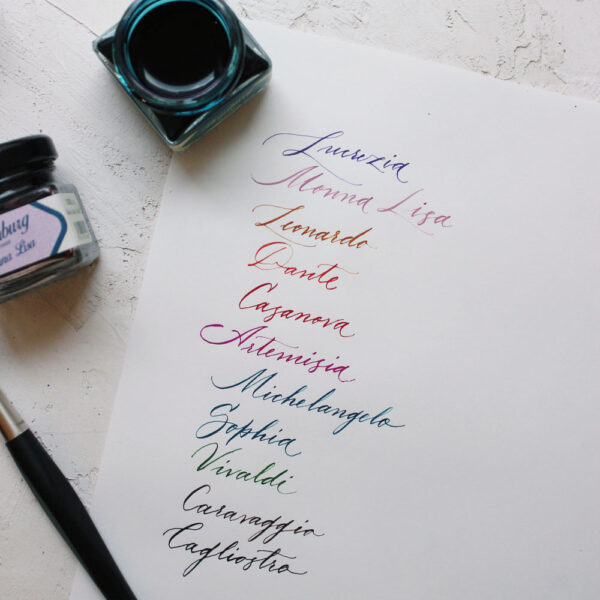 Lucrezia
Monna Lisa
Leonardo
Dante
Casanova
Artemisia
Michelangelo
Sophia
Vivaldi
Caravaggio
Cagliostro
nburg
na Lisa